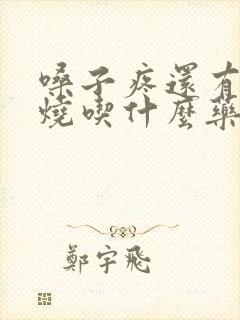 嗓子疼還有
燒喫什麼藥
鄭宇飛